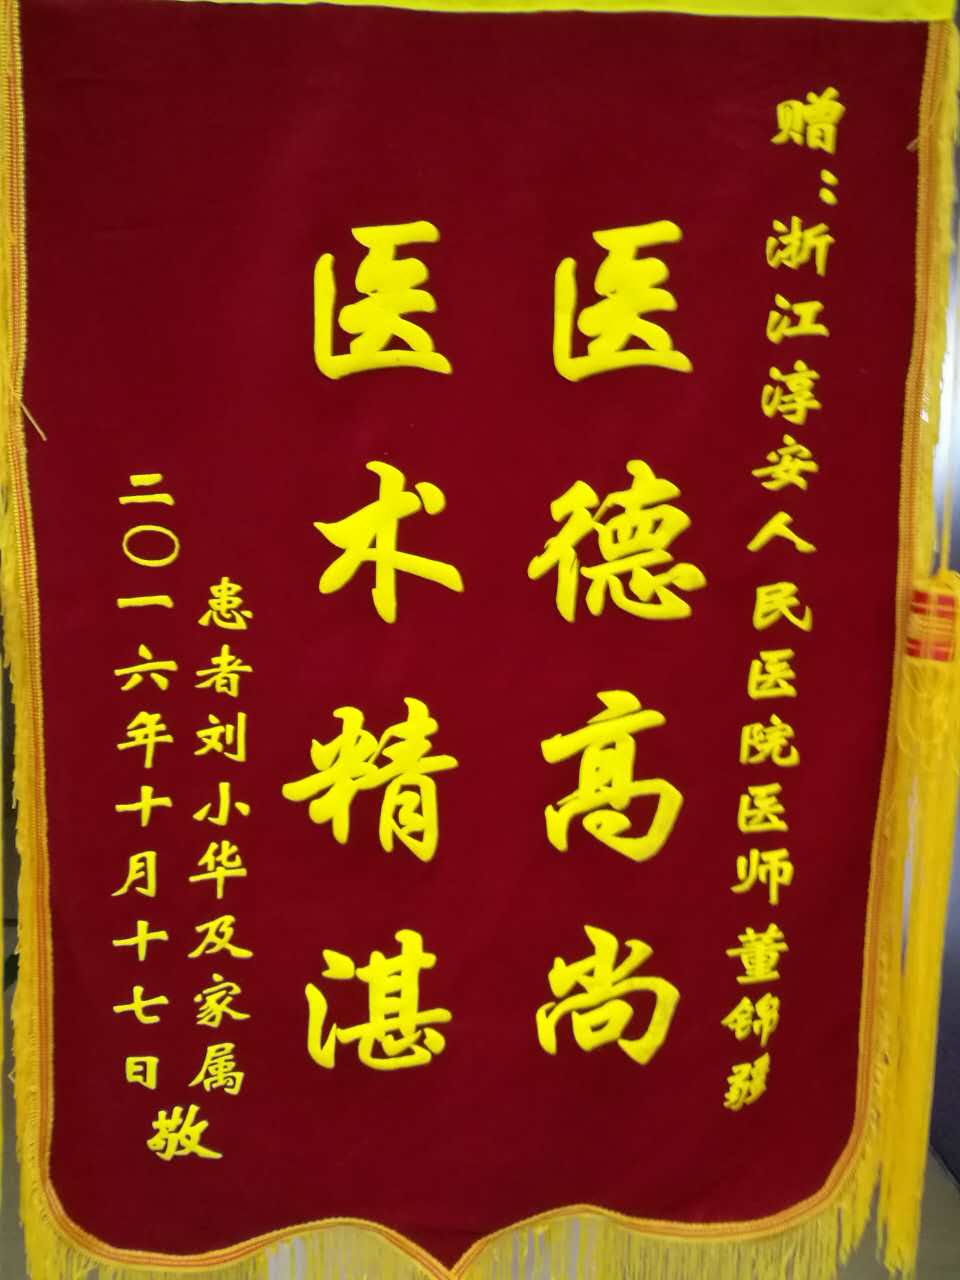 赠：浙江淳安人民医院医师董锦
医德高尚
医术精湛
患者刘小华及家属
二〇一六年十月十七日
敬